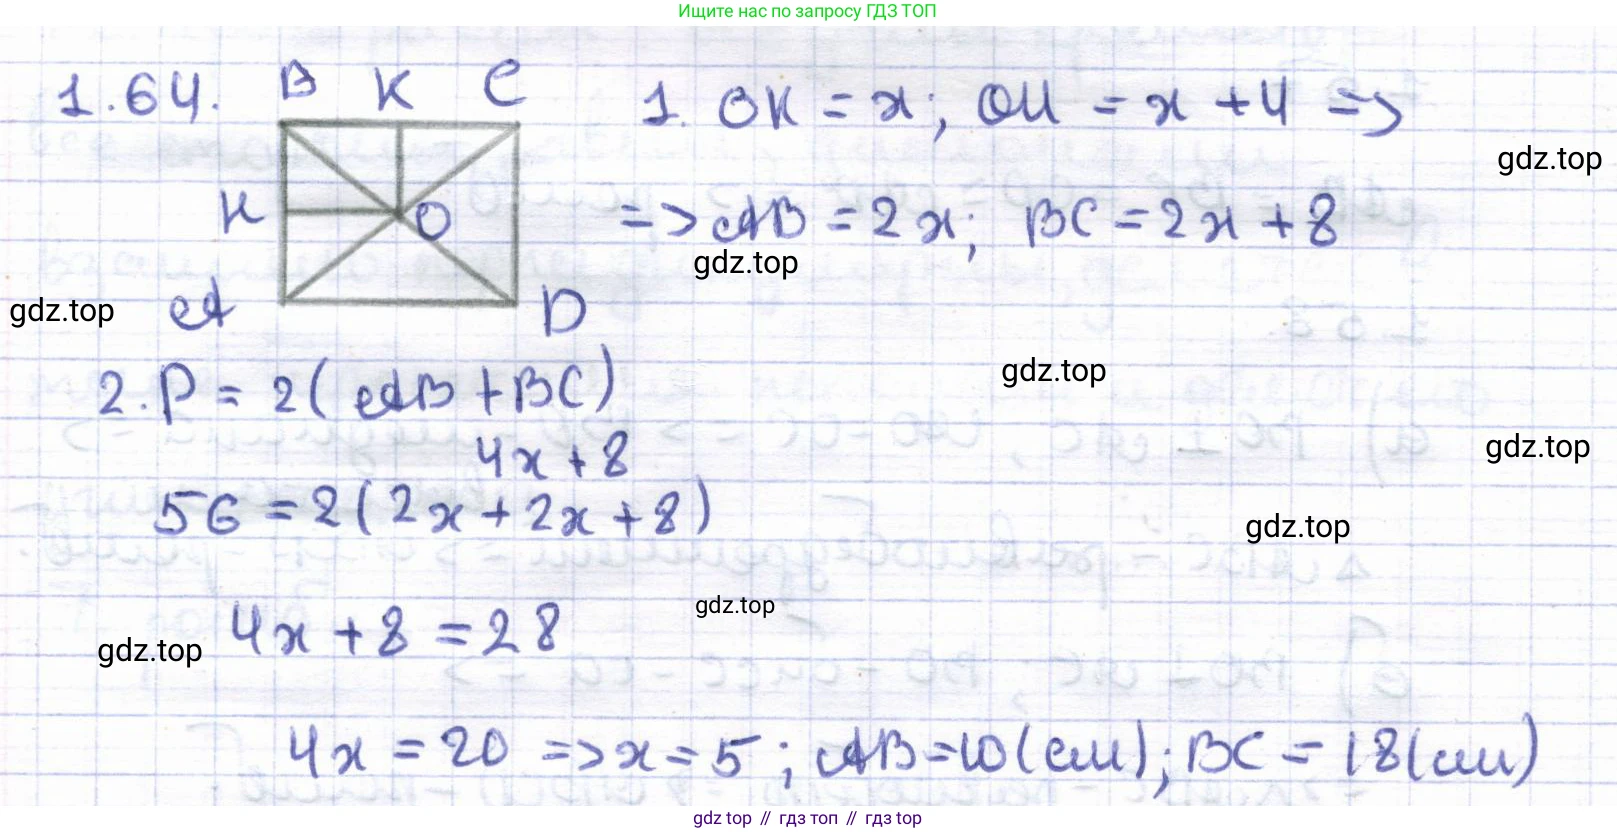 Ищите нас по запросу ГДЗ ТОП
1.64. B K C
1. OK = x; OH = x + 4 =>
gdz.top
H O
=> AB = 2x; BC = 2x + 8
gdz.top
gdz.top
A D
gdz.top
2. P = 2(AB + BC)
4x + 8
gdz.top
56 = 2(2x + 2x + 8)
gdz.top
gdz.top
4x + 8 = 28
gdz.top
4x = 20 => x = 5; AB = 10 (см); BC = 18 (см)
gdz.top // гдз топ // гдз.top